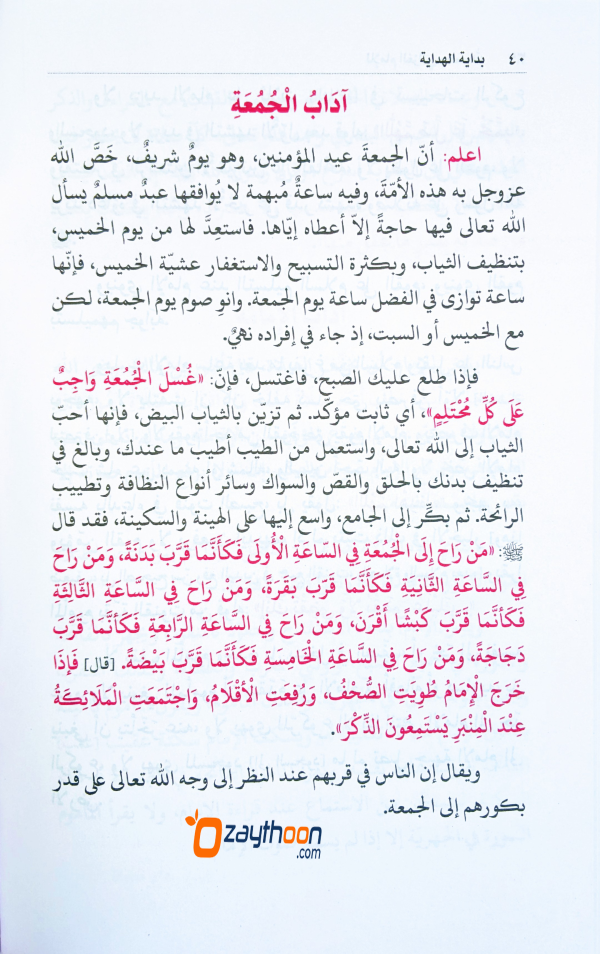 ٤٠ بداية الهداية
آدَابُ الْجُمُعَةِ
اعلم: أنّ الجمعةَ عيد المؤمنين، وهو يومٌ شريفٌ، خَصَّ الله
عزوجل به هذه الأمّةَ، وفيه ساعةٌ مُبهمة لا يُوافقها عبدٌ مسلمٌ يسألُ
الله تعالى فيها حاجةً إلاّ أعطاه إيّاها. فاستعِدَّ لها من يوم الخميس،
بتنظيف الثياب، وبكثرة التسبيح والاستغفار عشيّة الخميس، فإنّها
ساعة توازى في الفضل ساعة يوم الجمعة. وانوِ صوم يوم الجمعة، لكن
مع الخميس أو السبت، إذ جاء في إفراده نهيٌ.
فإذا طلع عليك الصبح، فاغتسل، فإنّ: «غُسْلَ الْجُمُعَةِ وَاجِبٌ
عَلَى كُلِّ مُحْتَلِمٍ»، أي ثابت مؤكّد. ثم تزيّن بالثياب البيض، فإنها أحبّ
الثياب إلى الله تعالى، واستعمل من الطيب أطيب ما عندك، وبالغ في
تنظيف بدنك بالحلق والقصّ والسواك وسائر أنواع النظافة وتطييب
الرائحة. ثم بكِّر إلى الجامع، واسع إليها على الهينة والسكينة، فقد قال
ﷺ: «مَنْ رَاحَ إِلَى الْجُمُعَةِ فِي السَّاعَةِ الْأُولَى فَكَأَنَّمَا قَرَّبَ بَدَنَةً، وَمَنْ رَاحَ
فِي السَّاعَةِ الثَّانِيَةِ فَكَأَنَّمَا قَرَّبَ بَقَرَةً، وَمَنْ رَاحَ فِي السَّاعَةِ الثَّالِثَةِ
فَكَأَنَّمَا قَرَّبَ كَبْشًا أَقْرَنَ، وَمَنْ رَاحَ فِي السَّاعَةِ الرَّابِعَةِ فَكَأَنَّمَا قَرَّبَ
دَجَاجَةً، وَمَنْ رَاحَ فِي السَّاعَةِ الْخَامِسَةِ فَكَأَنَّمَا قَرَّبَ بَيْضَةً. [قال] فَإِذَا
خَرَجَ الْإِمَامُ طُوِيَتِ الصُّحُفُ، وَرُفِعَتِ الْأَقْلَامُ، وَاجْتَمَعَتِ الْمَلَائِكَةُ
عِنْدَ الْمِنْبَرِ يَسْتَمِعُونَ الذِّكْرَ».
ويقال إن الناس في قربهم عند النظر إلى وجه الله تعالى على قدر
بكورهم إلى الجمعة.
zaythoon
.com